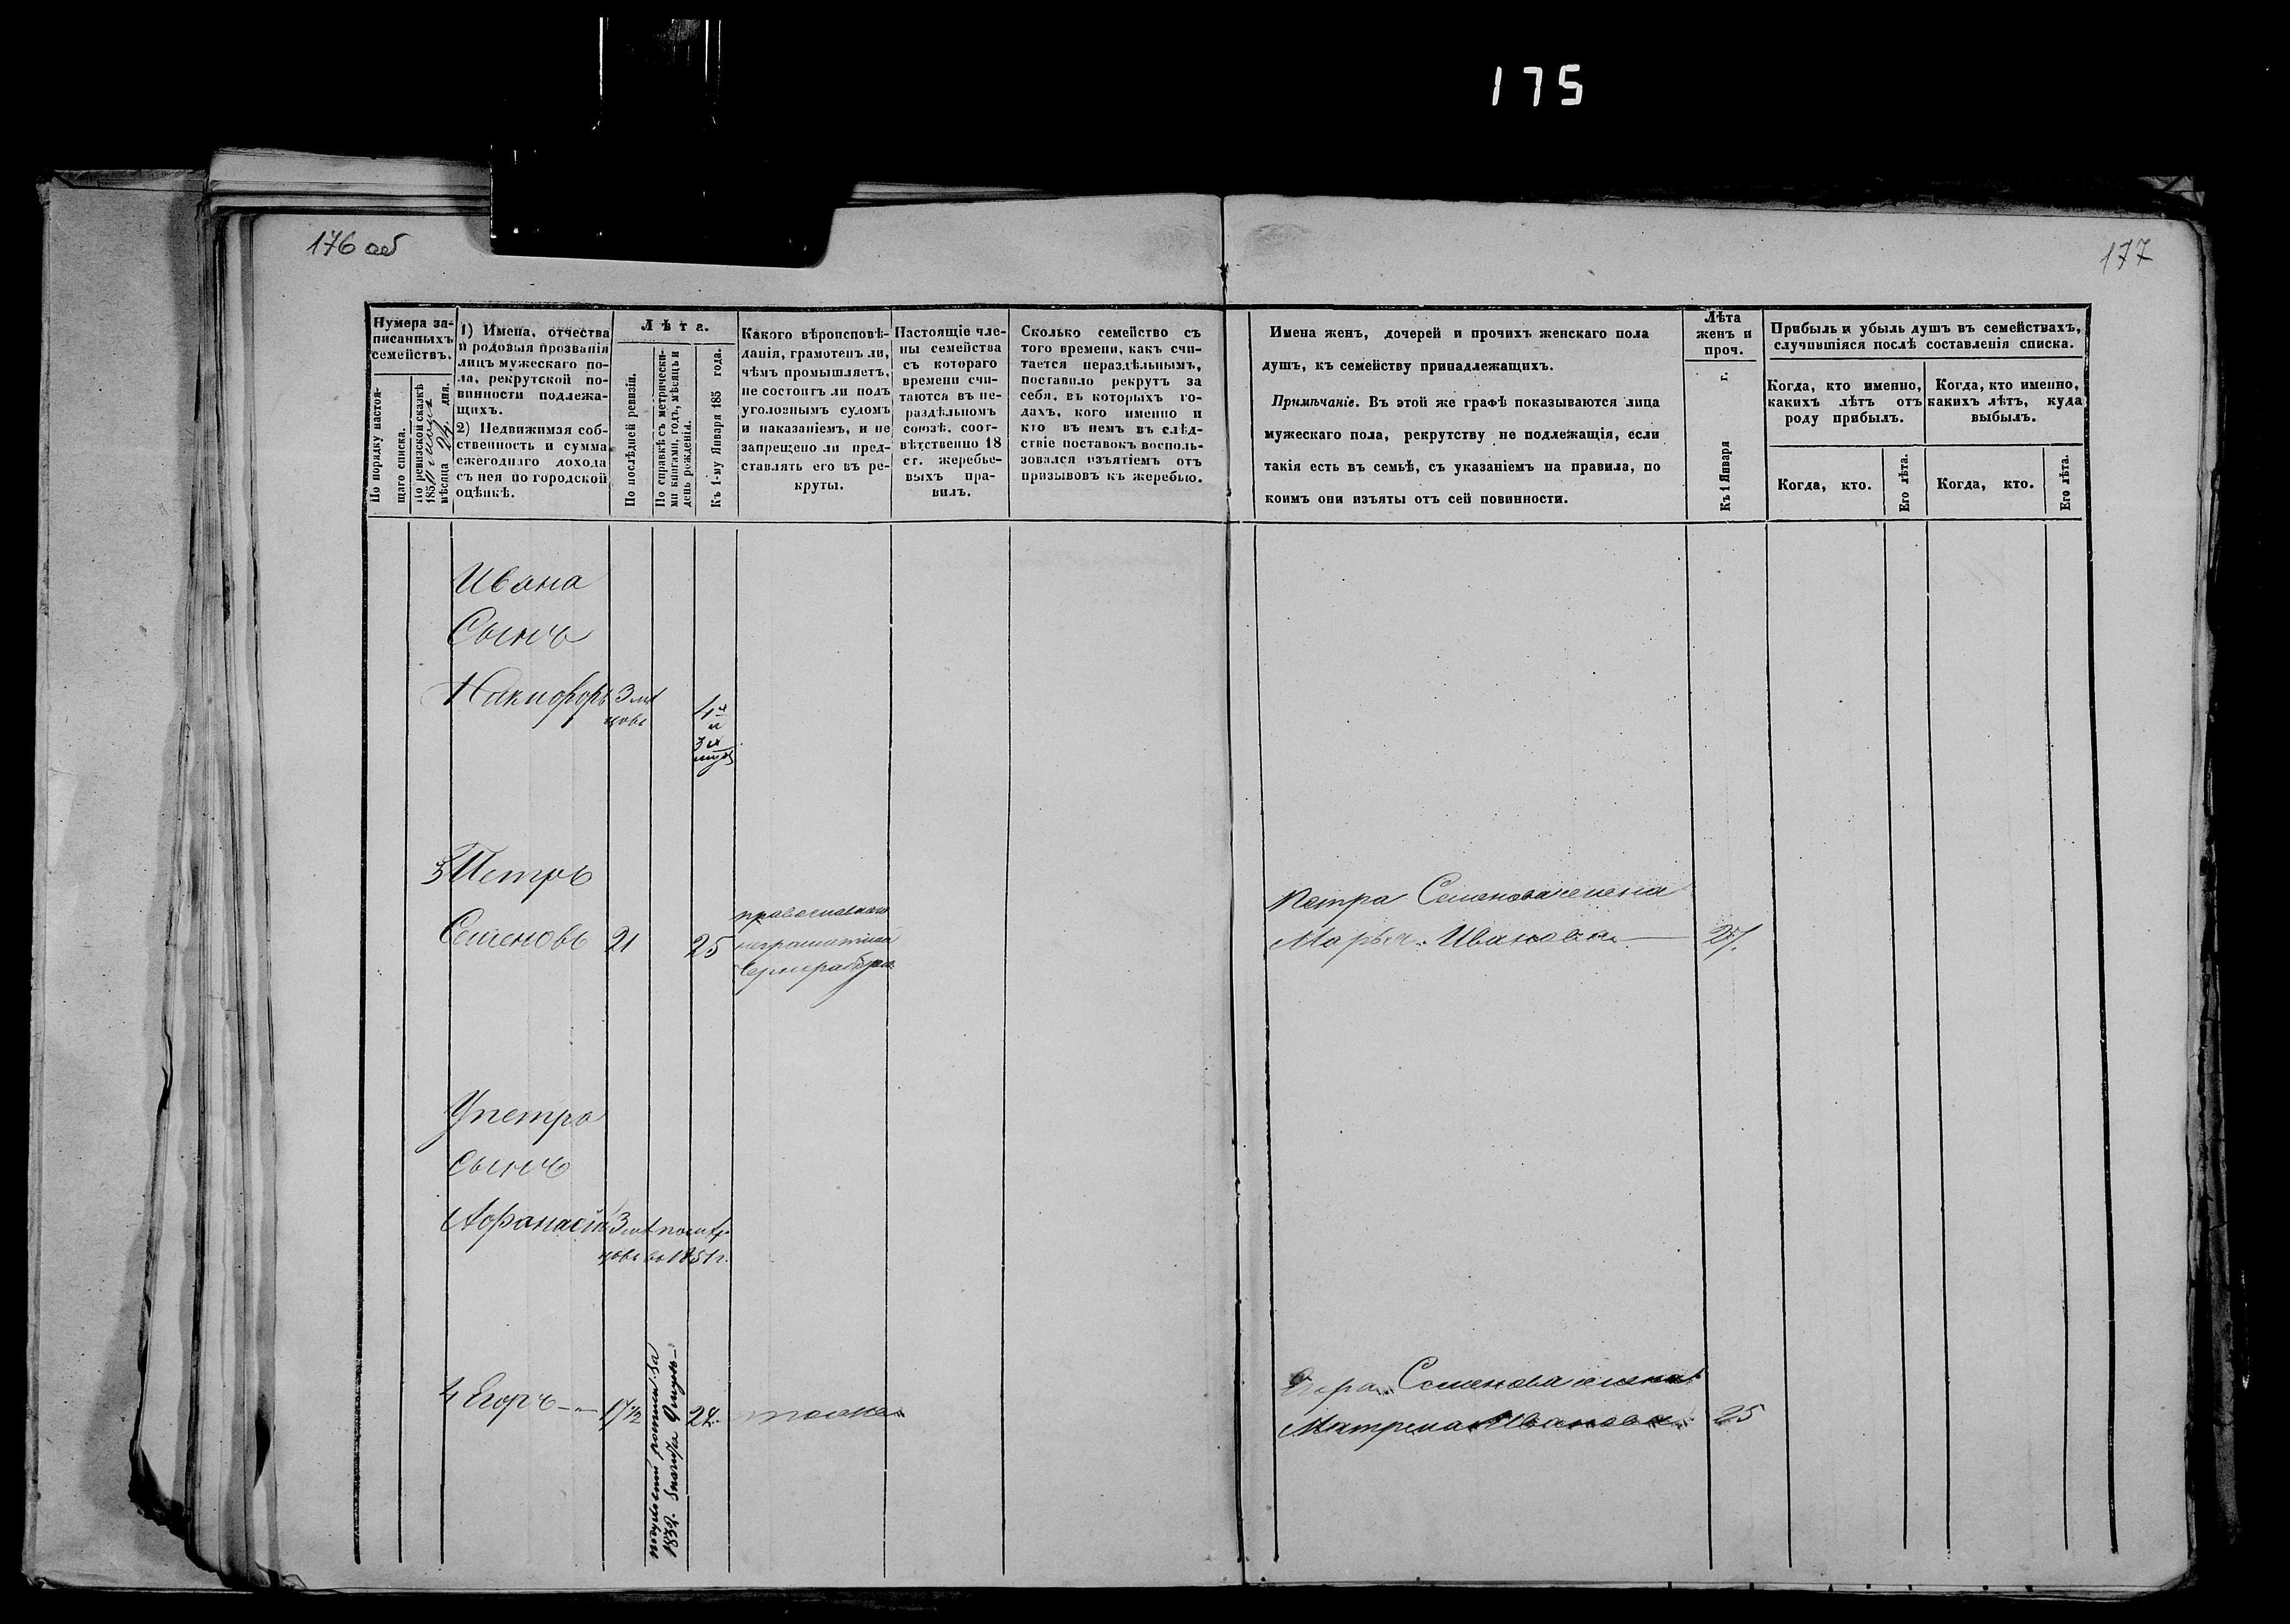 175
176 об
177
Нумера за-
писанныхъ
семействъ.
По порядку настоя-
щаго списка.
По ревизской сказкѣ
185
мѣсяца 24 дня.
1) Имена, отчества
и родовыя прозванія
лицъ мужескаго по-
ла, рекрутской по-
винности подлежа-
щихъ.
2) Недвижимая соб-
ственность и сумма
ежегоднаго дохода
съ нея по городской
оцѣнкѣ.
Лѣта.
По послѣдней ревизіи.
По справкѣ съ метрически-
ми книгами, годъ, мѣсяцъ и
день рожденія.
Къ 1-му Января 185 года.
Какого вѣроисповѣ-
данія, грамотенъ ли,
чѣмъ промышляетъ,
не состоитъ ли подъ
уголовнымъ судомъ
и наказаніемъ, и не
запрещено ли пред-
ставлять его въ ре-
круты.
Настоящіе чле-
ны семейства
съ котораго
времени счи-
таются въ не-
раздѣльномъ
союзѣ, соот-
вѣтственно 18
ст. жеребье-
выхъ пра-
вилъ.
Сколько семейство съ
того времени, какъ счи-
тается нераздѣльнымъ,
поставило рекрутъ за
себя, въ которыхъ го-
дахъ, кого именно и
кто въ немъ въ слѣд-
ствіе поставокъ восполь-
зовался изъятіемъ отъ
призывовъ къ жеребью.
Имена женъ, дочерей и прочихъ женскаго пола
душъ, къ семейству принадлежащихъ.
Примѣчаніе. Въ этой же графѣ показываются лица
мужескаго пола, рекрутству не подлежащія, если
такія есть въ семьѣ, съ указаніемъ на правила, по
коимъ они изъяты отъ сей повинности.
Лѣта
женъ и
проч.
Къ 1 Января г.
Прибыль и убыль душъ въ семействахъ,
случившіяся послѣ составленія списка.
Когда, кто именно,
какихъ лѣтъ отъ
роду прибылъ.
Когда, кто именно,
какихъ лѣтъ, куда
выбылъ.
Когда, кто.
Его лѣта.
Когда, кто.
Его лѣта.
Ивана
Сынъ
Никифоръ 3 мѣ
цовъ
4
и
3
3 Петръ
Семеновъ 21 25
православнаго
неграмотной
чернорабочій
Петра Семенова жена
Марья Иванова — 27.
У Петра
сынъ
Афанасій 3 мѣ
цовъ въ 1851 г.
4 Егоръ — 17 1/2 24 тоже
1832.
Егора Семенова жена
Матрена Иванова 25